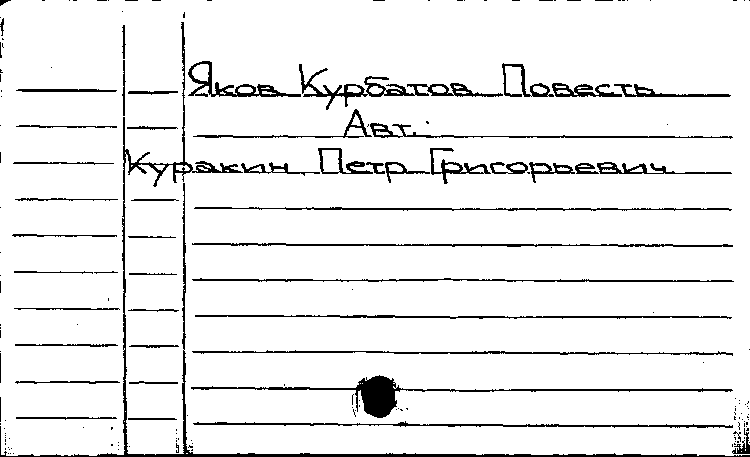 Яков Курбатов Повесть
Авт.:
Куракин Петр Григорьевич